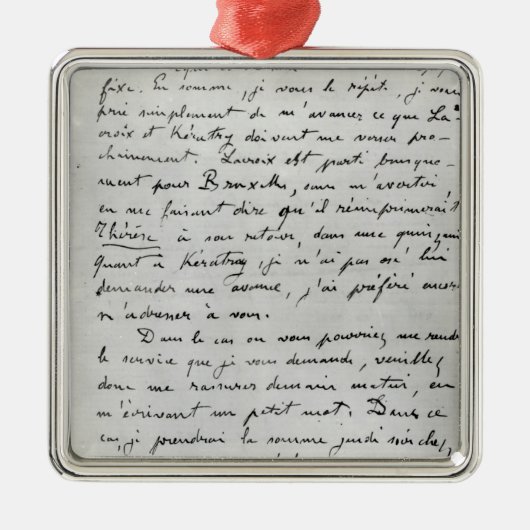 fixe. En somme, je vous le répète, je vous
prie simplement de m'avancer ce que La-
croix et Kératry doivent me verser pro-
chainement. Lacroix est parti brusque-
ment pour Bruxelles, sans m'avertir,
en me faisant dire qu'il réimprimerait
Thérèse à son retour, dans une quinzain
Quant à Kératry, je n'ai pas osé lui
demander une avance, j'ai préféré encore
m'adresser à vous.
Dans le cas où vous pourriez me rendre
le service que je vous demande, veuillez
donc me rassurer demain matin, en
m'écrivant un petit mot. Dans ce
cas, je prendrai la somme jeudi soir chez